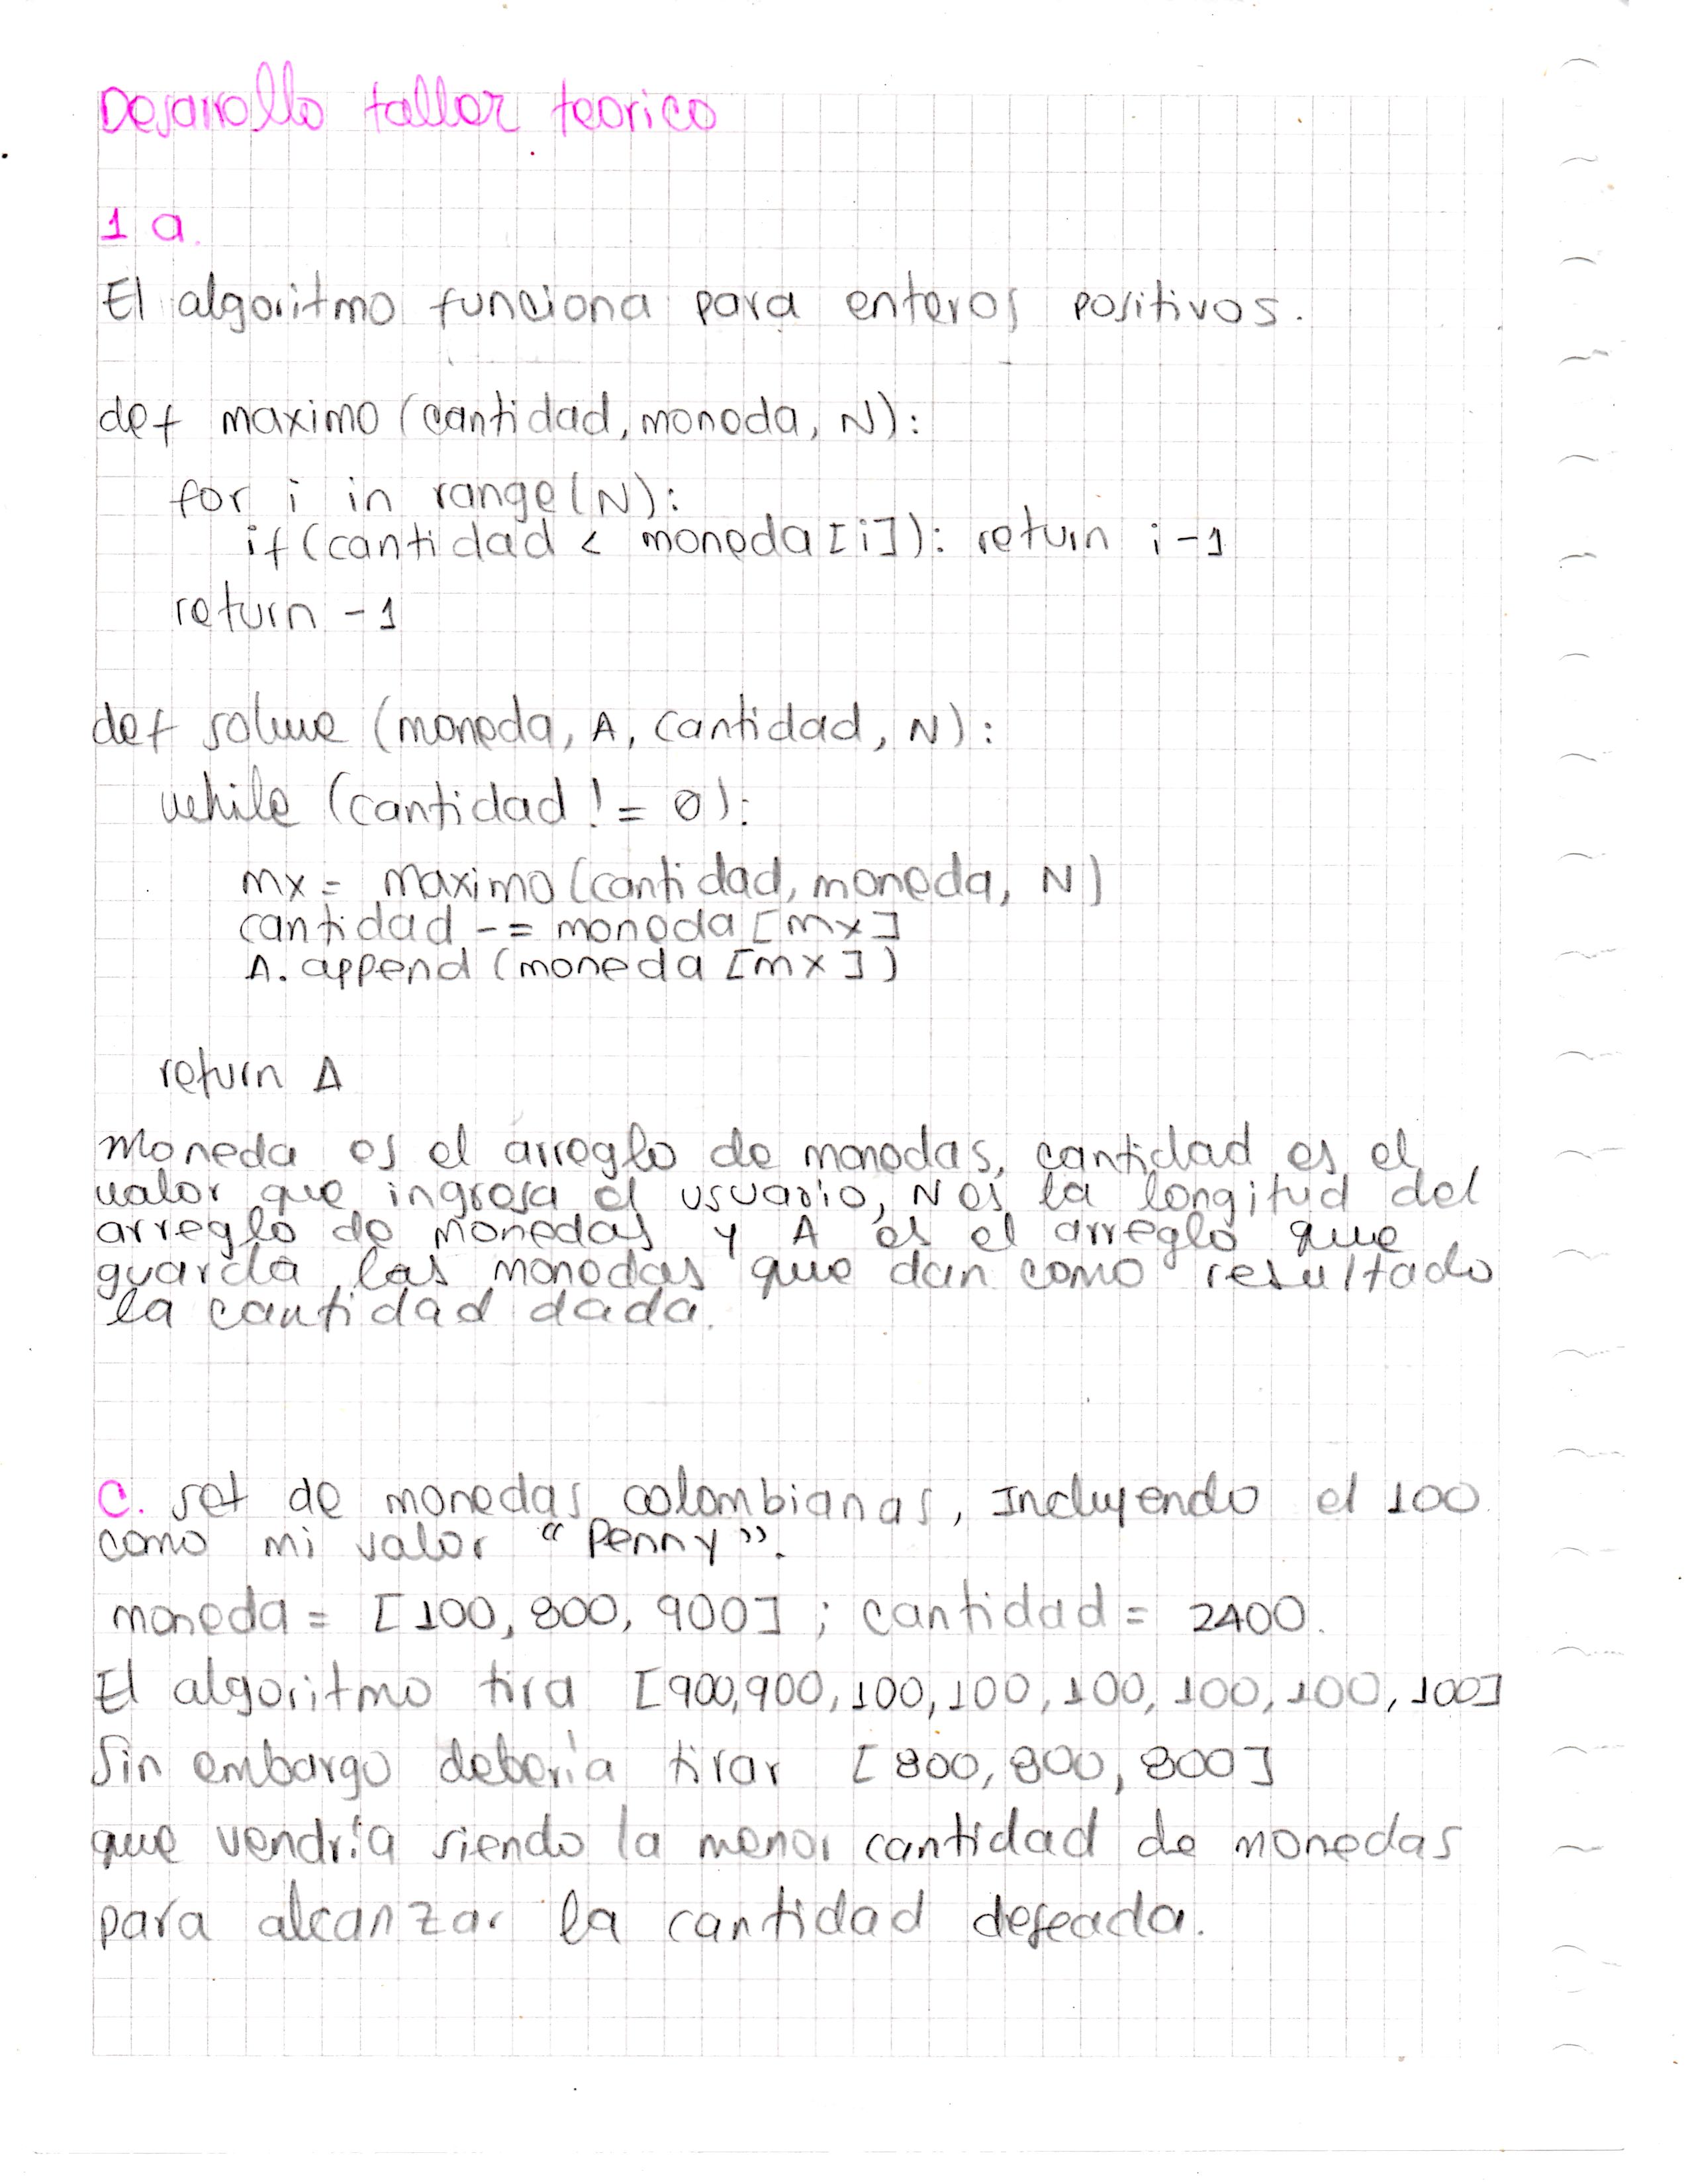 Desarrollo taller teorico
1 a.
El algoritmo funciona para enteros positivos.
def maximo (cantidad, moneda, N):
for i in range(N):
if (cantidad < moneda[i]): return i-1
return -1
def solve (moneda, A, cantidad, N):
while (cantidad != 0):
mx = maximo (cantidad, moneda, N)
cantidad -= moneda [mx]
A. append (moneda [mx])
return A
Moneda es el arreglo de monedas, cantidad es el
valor que ingresa el usuario, N es la longitud del
arreglo de monedas y A es el arreglo que
guarda las monedas que dan como resultado
la cantidad dada.
C. set de monedas colombianas, Incluyendo el 100
como mi valor "Penny".
moneda = [100, 800, 900] ; cantidad = 2400.
El algoritmo tira [900,900,100,100,100,100,100,100]
Sin embargo debería tirar [800, 800, 800]
que vendría siendo la menor cantidad de monedas
para alcanzar la cantidad deseada.